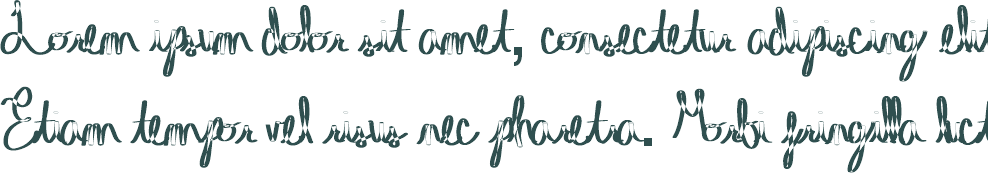 Lorem ipsum dolor sit amet, consectetur adipiscing elit
Etiam tempor vel risus nec pharetra. Morbi fringilla luct